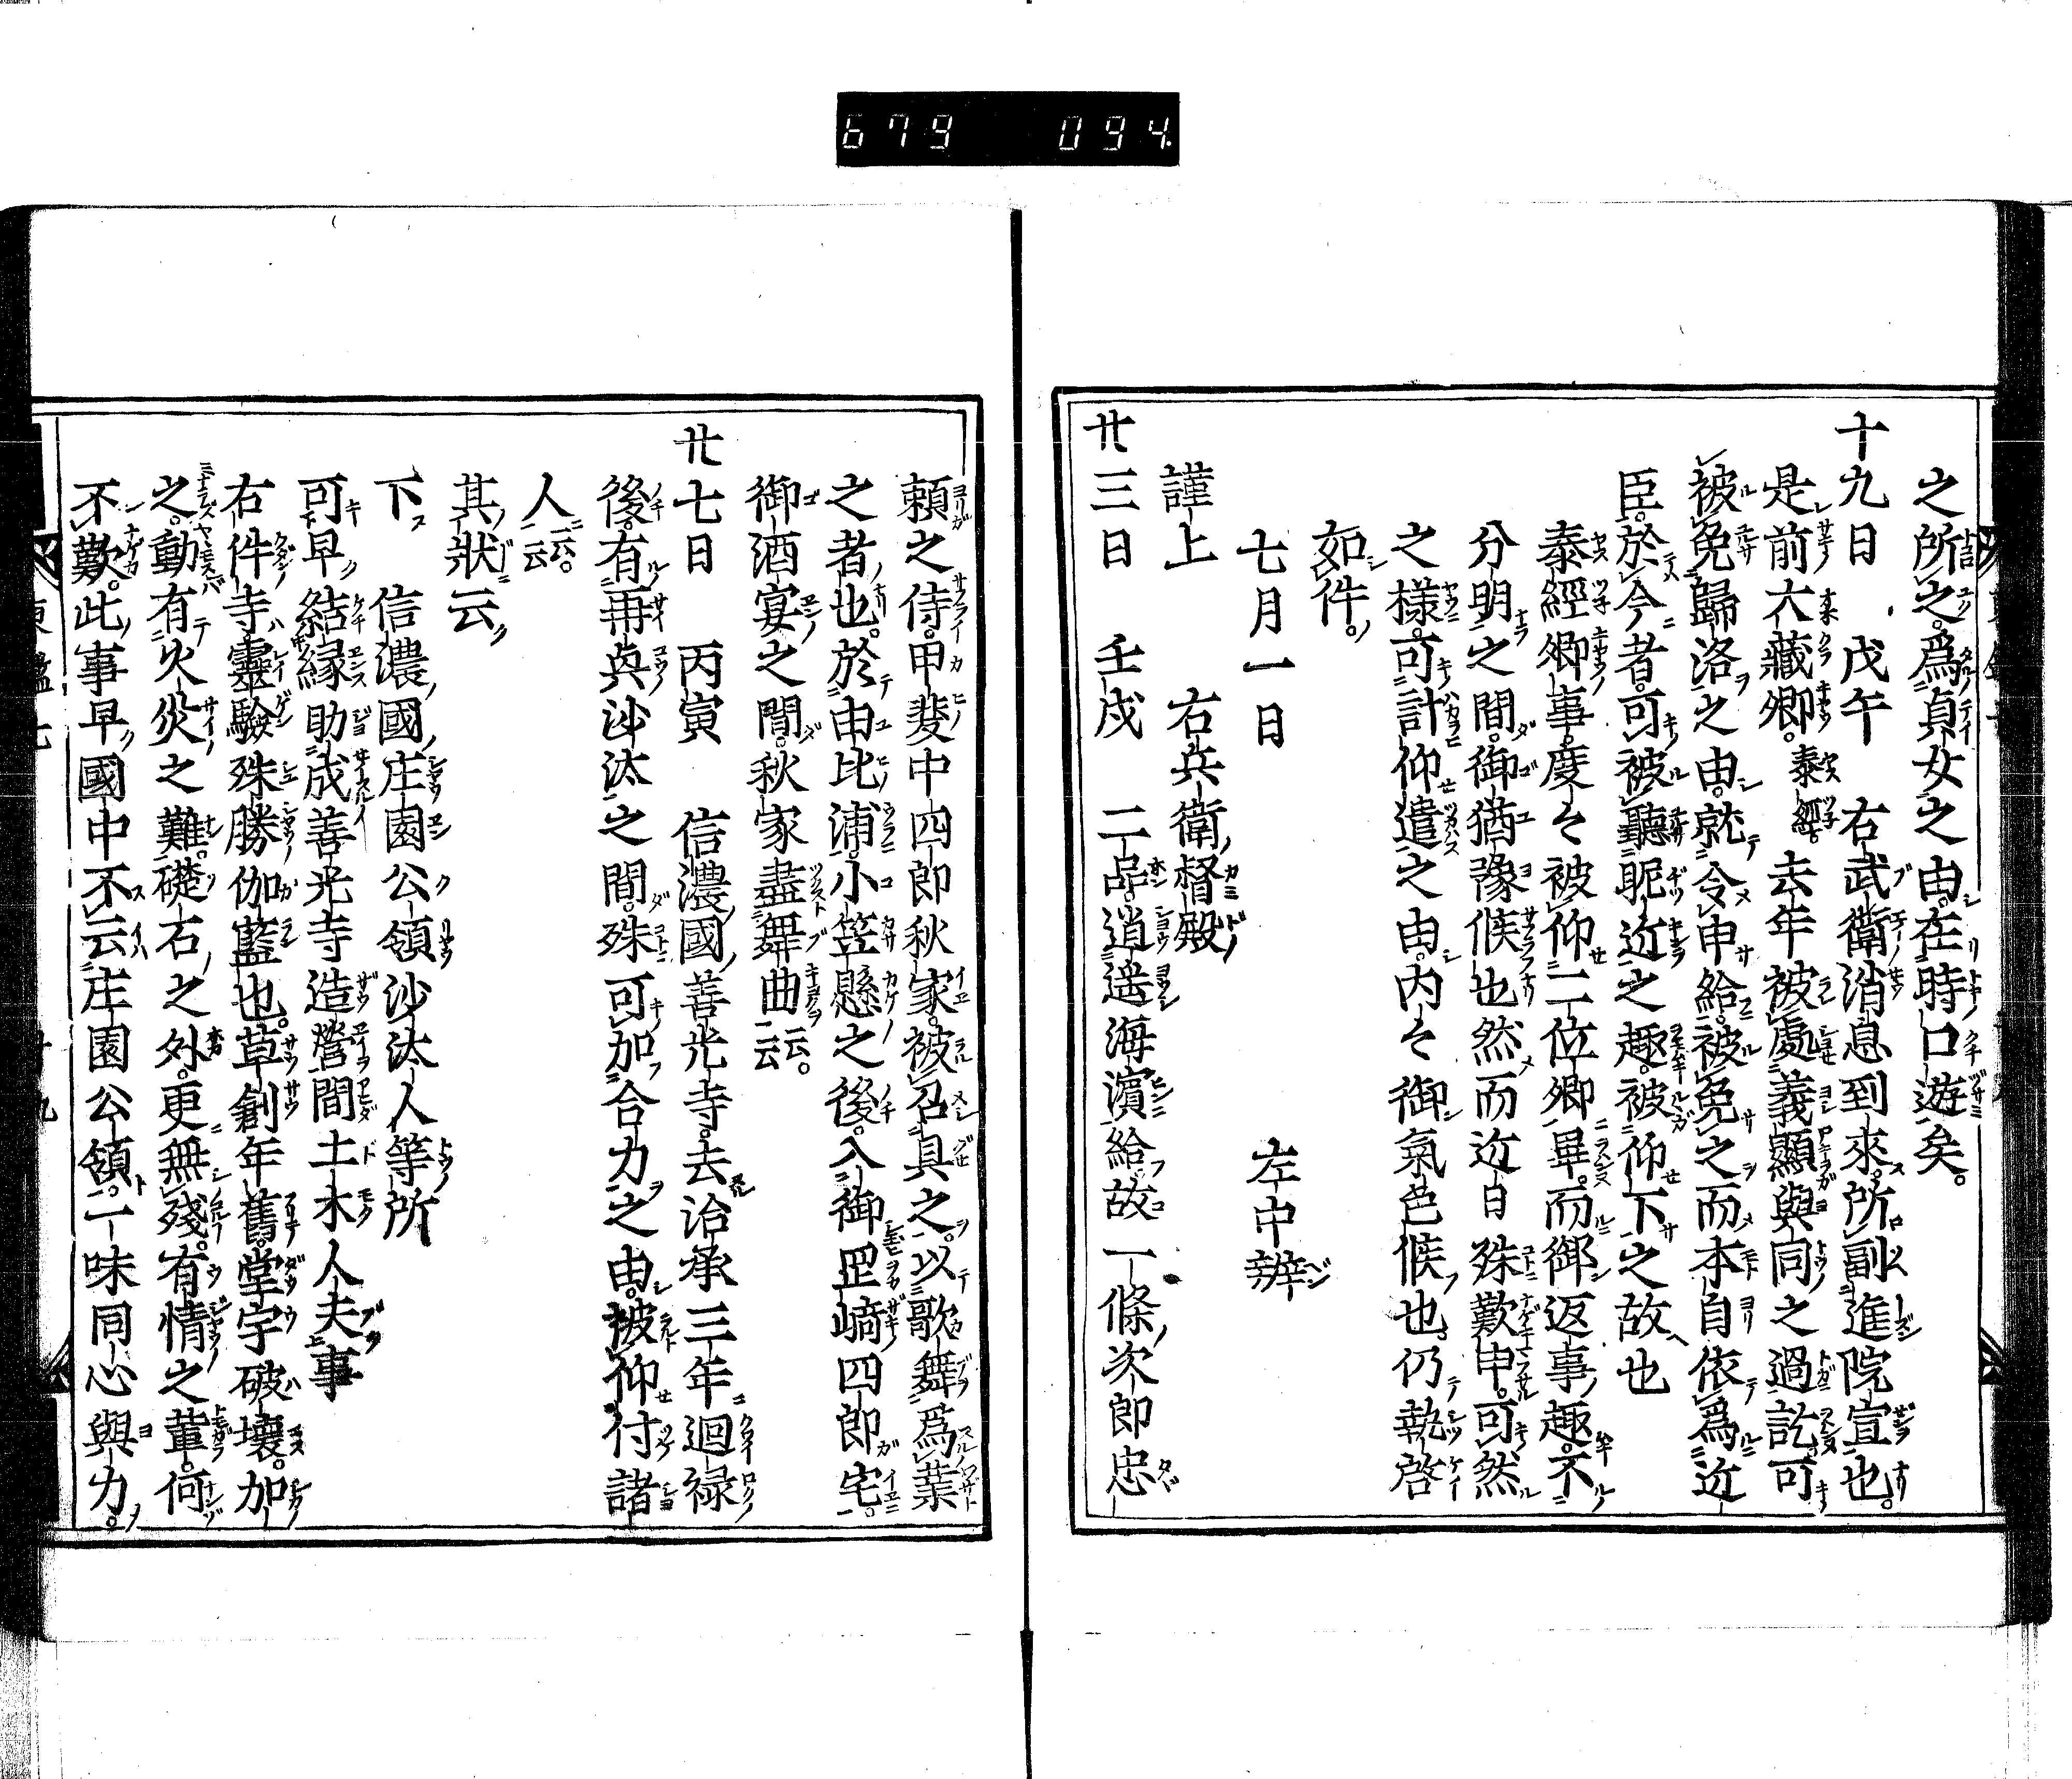 679 094
之所之。爲貞女之由。在時口遊矣。
十九日 戊午 右武衛消息到來。所副進院宣也。
是前大藏卿。泰經。去年被處義顯與同之過訖。可
被免歸洛之由。就令申給。被免之。而本自依爲近
臣。於今者。可被聽眤近之趣。被仰下之故也
泰經卿事。度々被仰二位卿畢。而御返事趣。不
分明之間。御猶豫候也然而近日殊歎申。可然
之樣。可計仰遣之由。内々御氣色候也。仍執啓
如件。
七月一日 左中辨
謹上 右兵衛督殿
廿三日 壬戌 二品逍遥海濱給故一條次郎忠
頼之侍。甲斐中四郎秋家。被召具之。以歌舞爲業
之者也。於由比浦。小笠懸之後。入御罡﨑四郎宅。
御酒宴之間。秋家盡舞曲云云。
廿七日 丙寅 信濃國善光寺。去治承三年迴禄
後。有再興沙汰之間。殊可加合力之由。被仰付諸
人云云。
其狀云
下 信濃國庄園公領沙汰人等所
可早結縁助成善光寺造營間土木人夫事
右件寺靈驗殊勝伽藍也。草創年舊。堂宇破壞。加
之。動有火災之難。礎石之外。更無殘。有情之輩。何
不歎。此事早國中不云庄園公領。一味同心與力。